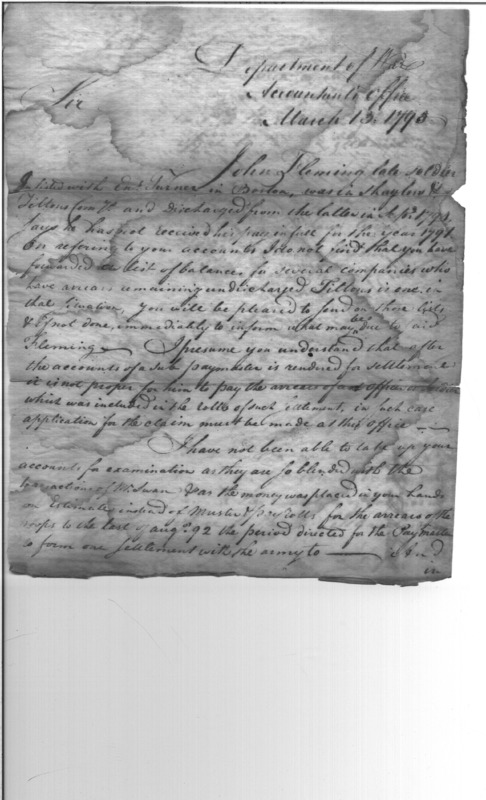 Department of War
Accountants Office
Sir
March 13. 1793
John Fleming late soldier
Inlisted with Ens. Turner in Boston, was in Shaylors &
Littons Comp.y and discharged from the latter in
says he has not received his pay in full for the year 1791
On refering to your accounts I do not find that you have
forwarded a list of balances for several companies who
have arrears remaining undischarged, is one in
that situation, you will be pleased to send on those lists
& if not done, immediately to inform what may be due to said
Fleming — I presume you understand that after
the accounts of a sub paymaster is rendered for settlement
it is not proper for him to pay the arrears of an officer or
which was included in the rolls of such settlement, in such case
application for the claim must be made at this office —
I have not been able to take up your
accounts for examination as they are so blended with the
transactions of Mr Swan & as the money was placed in your hands
on Estimates instead of Muster & pay Rolls for the arrears of the
troops to the last of augt. 92 the period directed for the Paymaster
to form one settlement with the army to —